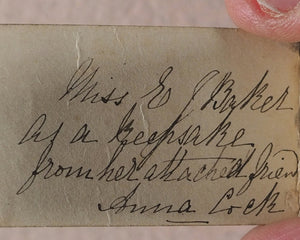 Miss E J Baker
as a Keepsake
from her attached friend
Anna Lock